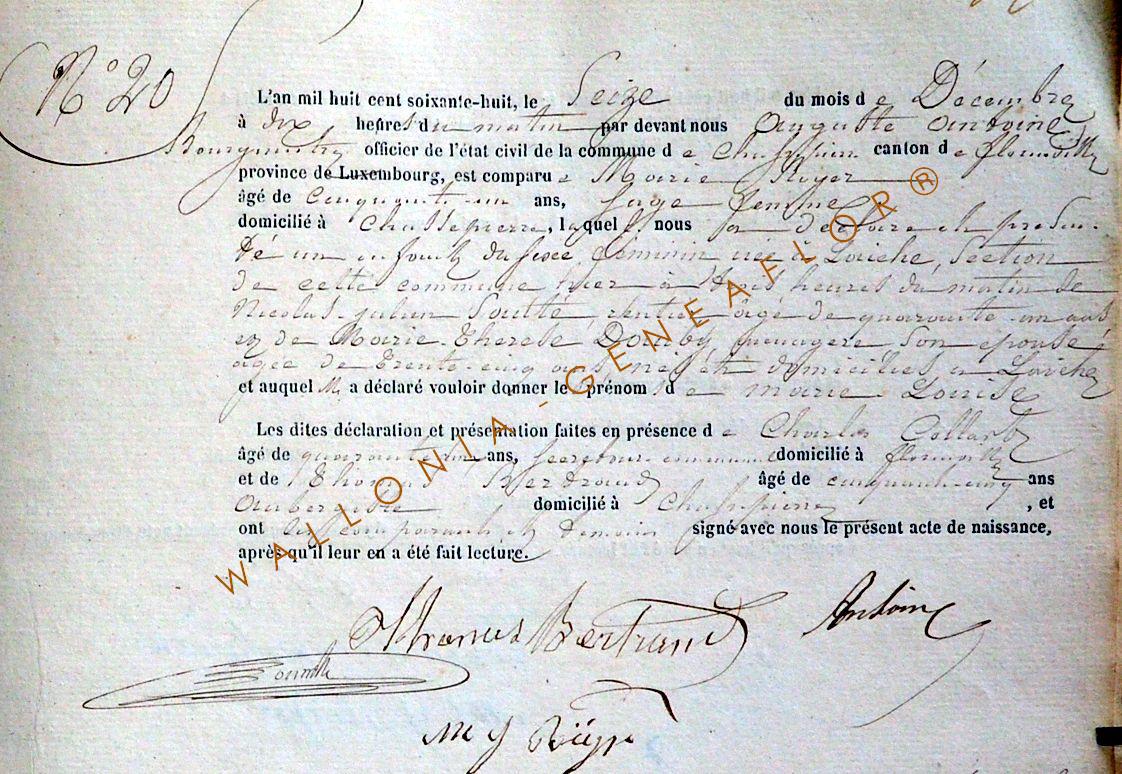 N° 20
L'an mil huit cent soixante-huit, le Seize du mois de Décembre
à dix heures du matin par devant nous Auguste Antoine
Bourgmestre officier de l'état civil de la commune de Chassepierre canton de florenville
province de Luxembourg, est comparue Marie Royer
âgé de Cinquante-un ans, sage femme
domicilié à Chassepierre, laquelle nous a declaré et présen-
té un enfant du sexe féminin née à Laiche, Section
de cette commune hier à trois heures du matin de
Nicolas-julien rentier âgé de quarante-un ans
et de Marie-Therese ménagère son epouse
agée de trente-cinq ans domiciliés à Laiche
et auquel a déclaré vouloir donner le prénom de marie Louise
Les dites déclaration et présentation faites en présence de Charles Collart
âgé de quarante ans, secrétaire communal domicilié à florenville
et de Thomas Bertrand âgé de cinquante-cinq ans
Aubergiste domicilié à Chassepierre, et
ont les comparants et temoins signé avec nous le présent acte de naissance,
après qu'il leur en a été fait lecture.
Thomas Bertrand Antoine
WALLONIA-GENEAFLOR®